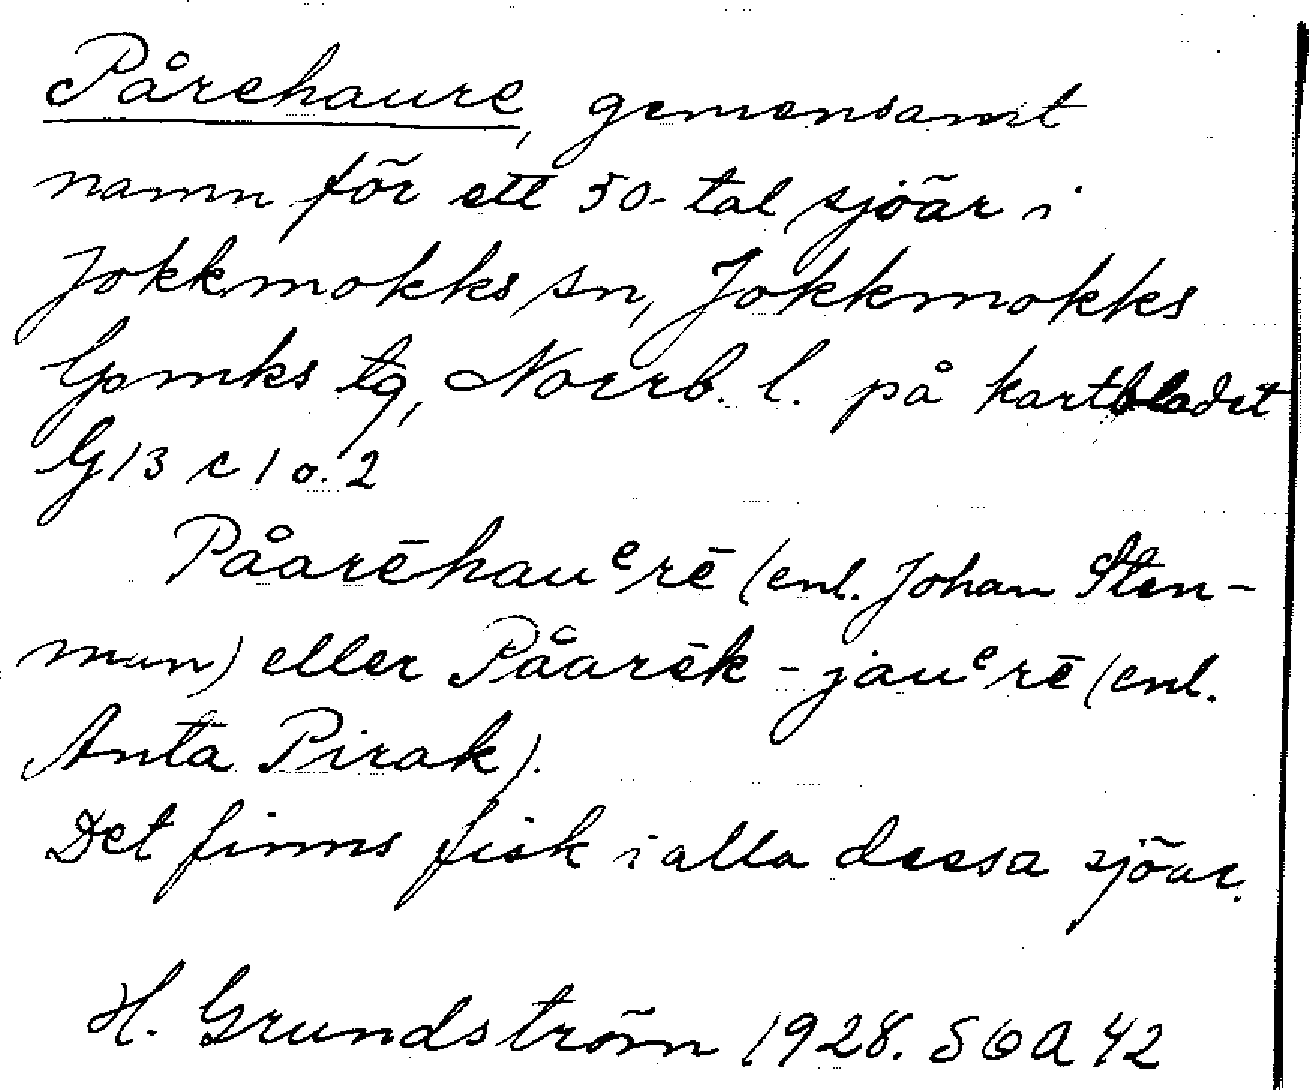 Pårehaure, gemensamt
namn för ett 50-tal sjöar i
Jokkmokks sn, Jokkmokks
lpmks tg, Norrb. l. på kartbladet
G13 c 1 o. 2
Påarēhauᵉrē (enl. Johan Sten-
man) eller Påarēk-jauᵉrē (enl.
Anta Pirak).
Det finns fisk i alla dessa sjöar.
H. Grundström 1928. SOA 42